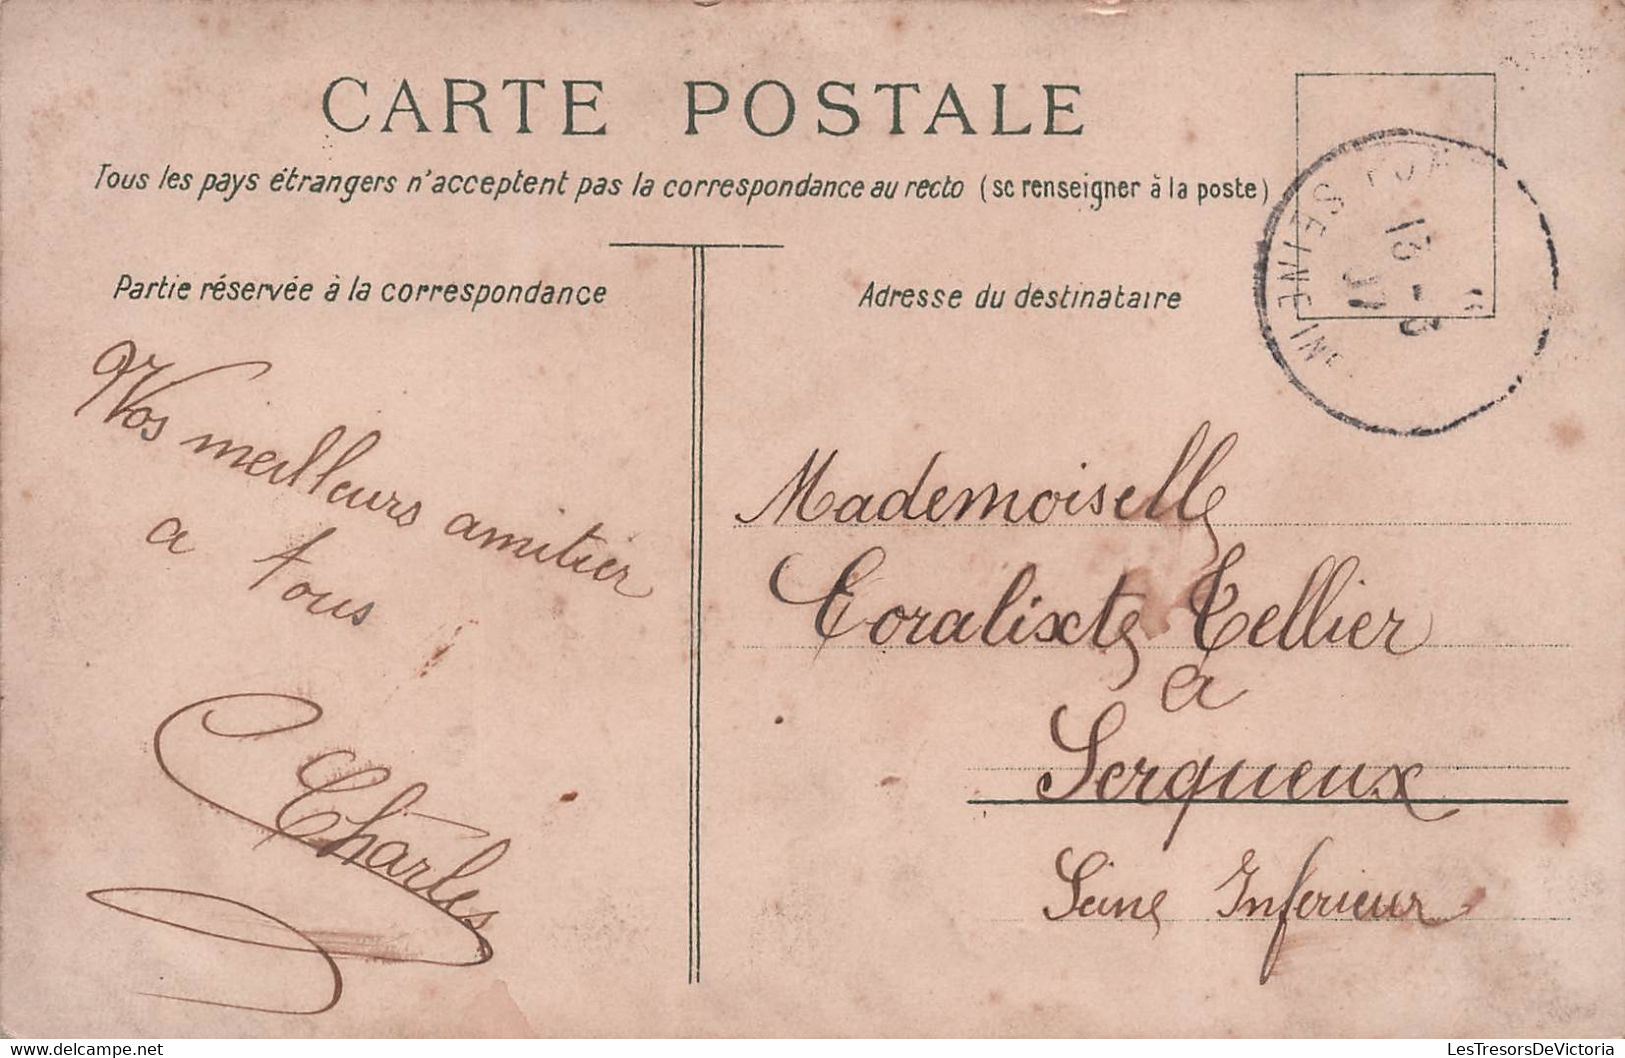 CARTE POSTALE
Tous les pays étrangers n'acceptent pas la correspondance au recto (se renseigner à la poste)
Partie réservée à la correspondance
Adresse du destinataire
SEINE INF
13 - 3
07
Nos meilleurs amitier
a tous
Charles
Mademoiselle
Coralixte Tellier
a
Serqueux
Seine Inferieur
LesTresorsDeVictoria